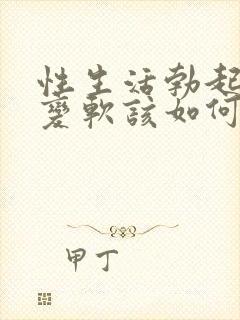 性生活勃起
变软该如何
甲丁